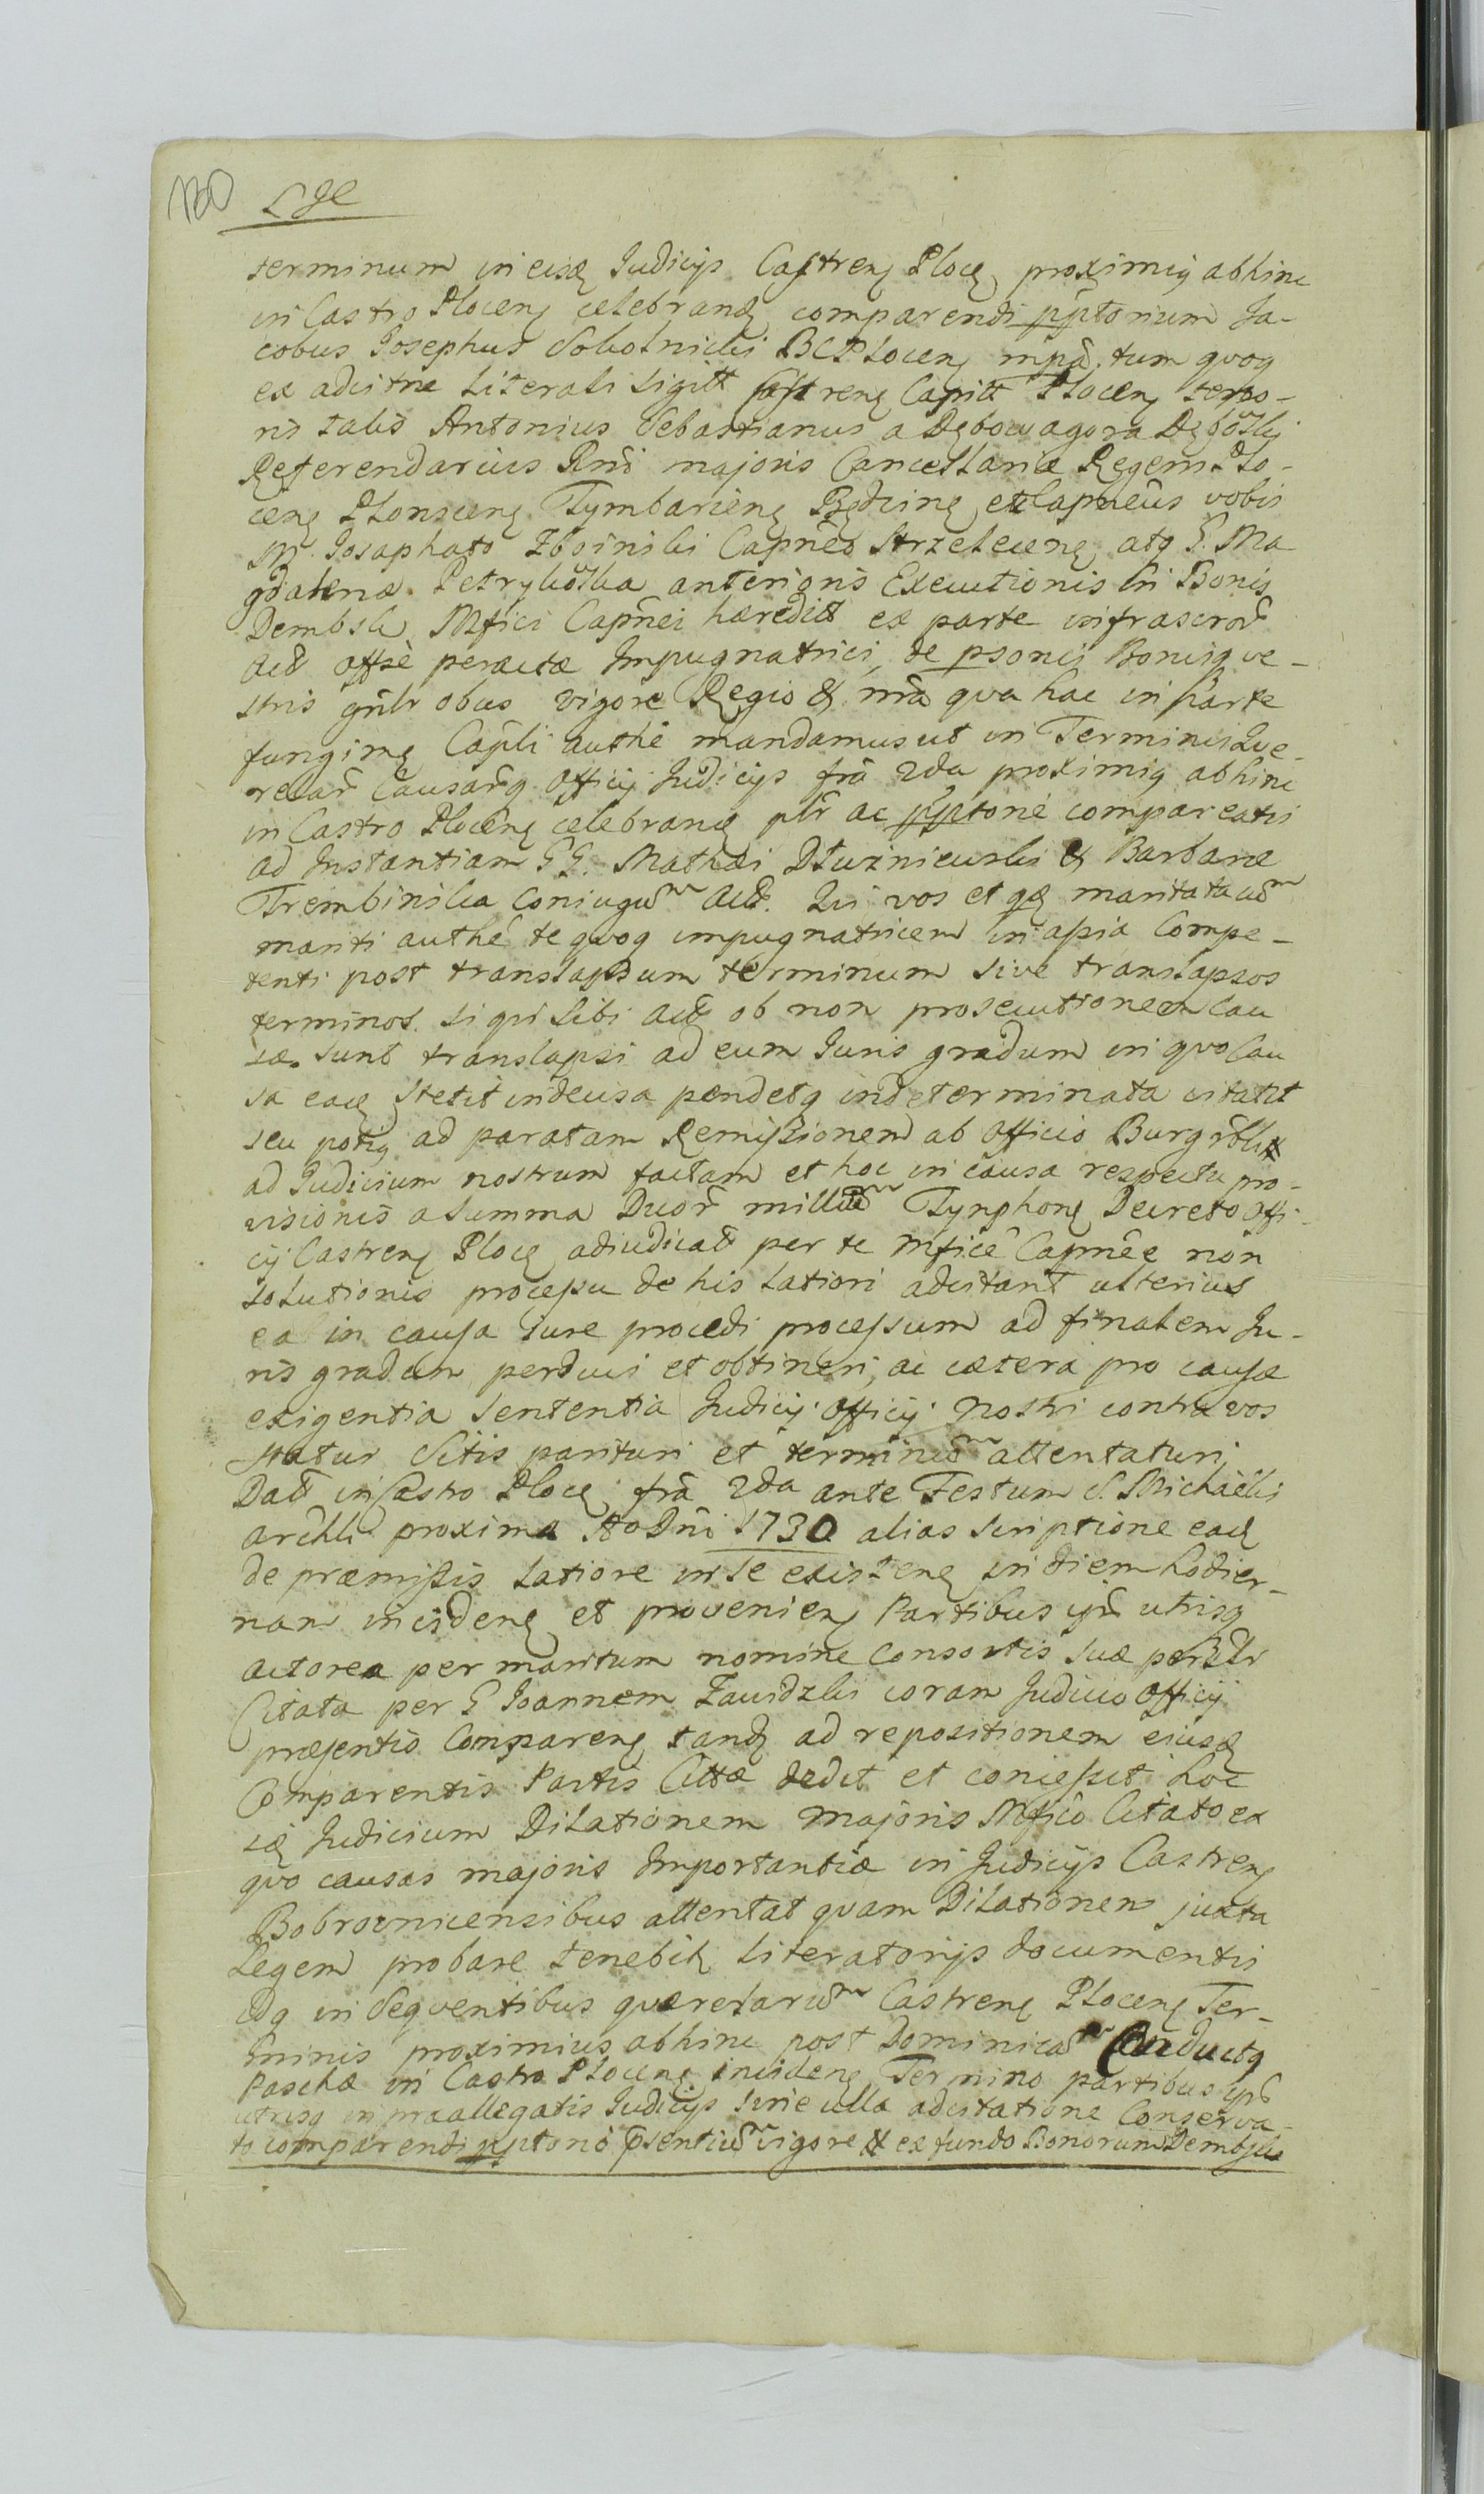 180
terminum in eisq Judicijs Castreng Plocg proximiq abhinc
in Castro Ploceng celebrandq comparendi pptorium Ja-
cobus Josephus Sobolnicki BCPloceng mpa tum qvoq
ex adcitne Literali sigill Castreng Capitl Ploceng tempo-
ris talis Antonius Sebastianus a Dębowagora Dębowski
Referendarius Rni majoris Cancellariæ Regem Plo-
ceng Plonsceng Tymbarieng Będzing etc Capneus vobis
M. Josaphato Zboinski Capneo Strzeleceng atq G. Ma
gdalenæ Petrykowska anterioris Executionis in Bonis
Dembsk Mfici Capnei hæredit ex parte infrascror
Act offse peractæ Impugnatrici, de psonis Bonisq ve-
stris gnlr obus vigore Regio & nra qva hac in parte
fungimq Capli authe mandamus ut in Terminis Qve-
relar Causarq Officij Judicijs fria 2da proximiq abhinc
in Castro Ploceng celebrang plr ac pptorie compareatis
ad Instantiam GG. Mathæi Dłużniewski & Barbaræ
Trembinska Coniugum Act. Qui vos et qæ maritata cum
mariti authe te qvoq impugnatricem in assia Compe-
tenti post translapsum terminum sive translapsos
terminos si qui sibi Act ob non prosecutionem Cau
sæ sunt translapsi ad eum Juris gradum in qvo Cau
sa eadq stetit indecisa pendetq indeterminata citatit
seu potiq ad paratam Remissionem ab Officio Burgrbli
ad Judicium nostrum factam et hoc in causa respectu pro-
visionis a Summa Duor millium Tynphong Decreto Offi-
cij Castreng Plocg adiudicat per te Mfice Capnee non
solutionis processu de his latiori adcitant ulterius
ea in causa Jure procedi processum ad finalem Ju-
ris gradum perduci et obtineri, ac cætera pro causæ
exigentia Sententia Judicij Officij nostri contra vos
statur Sitis parituri et terminum attentaturi
Dat in Castro Plocg fria 2da ante Festum S. Michaelis
archli proxima Ao Dni 1730 alias scriptione eadq
de præmissis latiore in se existeng in diem hodier-
nam incideng et provenieng Partibus ipr utrisq
actorea per maritum nomine Consortis suæ
Citata per G Joannem Zawidzki coram Judicio Officij
præsentis Compareng tandq ad repositionem eiusq
Comparentis Partis Cittæ dedit et concessit hoc
idq Judicium Dilationem majoris Mfico Citato ex
qvo causas majoris Importantiæ in Judicijs Castreng
Bobrovnicensibus attentat qvam Dilationem juxta
Legem probare tenebitq literatorijs documentis
idq in Seqventibus qværelarum Castreng Ploceng Ter-
minis proximius abhinc post Dominicam Conductq
Paschæ in Castro Ploceng incideng Termino partibus ipr
utrisq in præallegatis Judicijs sine ulla adcitatione Conserva-
to comparendi pptorio psentium vigore & ex fundo Bonorum Dembsk